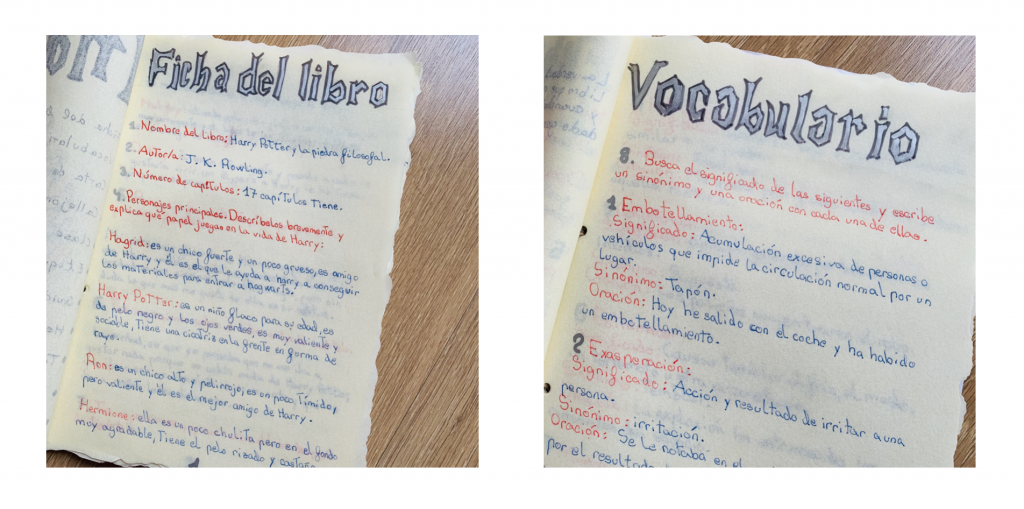 Ficha del libro
1. Nombre del Libro: Harry Potter y la piedra filosofal.
2. Autor/a: J. K. Rowling.
3. Número de capítulos: 17 capítulos tiene.
4. Personajes principales. Descríbelos brevemente y
explica qué papel juegas en la vida de Harry:
Hagrid: es un chico fuerte y un poco grueso, es amigo
de Harry y Él es el que le ayuda a harry a conseguir
los materiales para entrar a hogwarts.
Harry Potter: es un niño flaco para su edad, es
de pelo negro y los ojos verdes, es muy valiente y
sociable, Tiene una cicatriz en la frente en forma de
rayo.
Ron: es un chico alto y pelirrojo, es un poco tímido,
pero valiente y él es el mejor amigo de Harry.
Hermione: ella es un poco chulita pero en el fondo
muy agradable, Tiene el pelo rizado y
Vocabulario
8. Busca el significado de las siguientes y escribe
un sinónimo y una oración con cada una de ellas.
1 Embotellamiento:
Significado: Acumulación excesiva de personas o
vehículos que impide la circulación normal por un
lugar.
Sinónimo: Tapón.
Oración: Hoy he salido con el coche y ha habido
un embotellamiento.
2 Exasperación:
Significado: Acción y resultado de irritar a una
persona.
Sinónimo: irritación.
Oración: Se le notaba en el
por el resultado